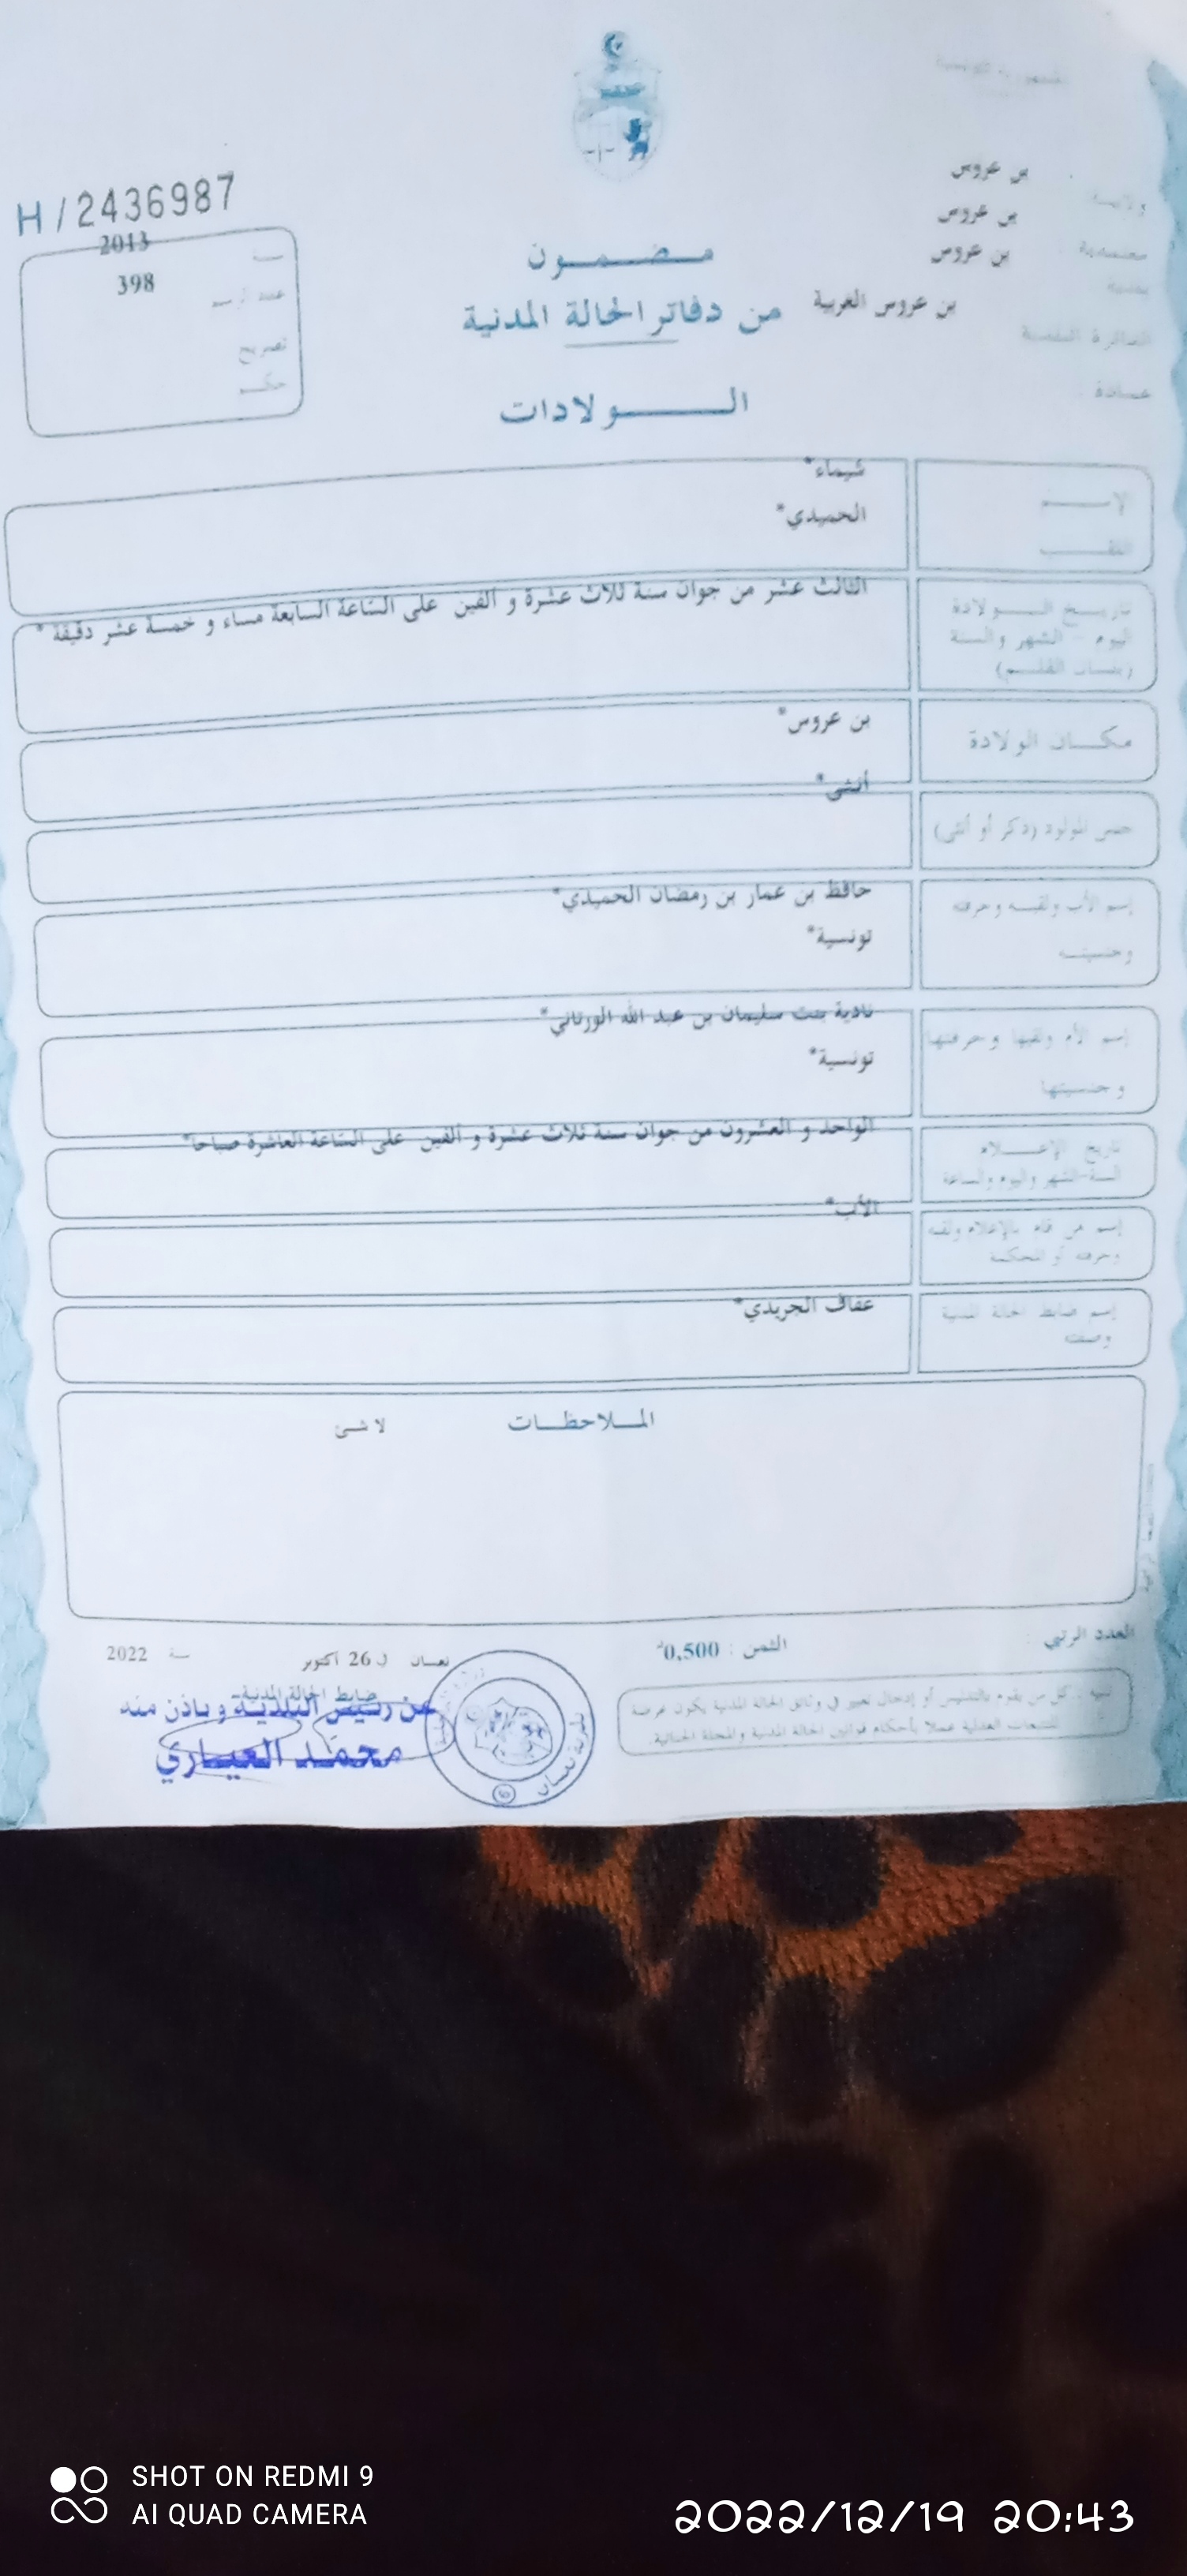 H/2436987
بن عروس
ولاية
بن عروس
معتمدية
بن عروس
بلدية
بن عروس الغربية
الدائرة البلدية
عمادة
2013
سنة
398
عدد الرسم
تصريح
حكم
مضمون
من دفاتر الحالة المدنية
الولادات
الإسم
شيماء*
اللقب
الحميدي*
تاريخ الولادة
اليوم - الشهر والسنة
(بلسان القلم)
الثالث عشر من جوان سنة ثلاث عشرة و ألفين على الساعة السابعة مساء و خمسة عشر دقيقة *
مكان الولادة
بن عروس*
جنس المولود (ذكر أو أنثى)
أنثى*
إسم الأب ولقبه وحرفته
وجنسيته
حافظ بن عمار بن رمضان الحميدي*
تونسية*
إسم الأم ولقبها وحرفتها
وجنسيتها
نادية بنت سليمان بن عبد الله الورتاني*
تونسية*
تاريخ الإعلام
السنة-الشهر واليوم والساعة
الواحد و العشرون من جوان سنة ثلاث عشرة و ألفين على الساعة العاشرة صباحا*
إسم من قام بالإعلام ولقبه
وحرفته أو المحكمة
الأب*
إسم ضابط الحالة المدنية
وصفته
عفاف الجريدي*
الملاحظات
لا شئ
العدد الرتبي :
الثمن : 0,500د
نعسان في 26 أكتوبر سنة 2022
ضابط الحالة المدنية
عن رئيس البلدية وبإذن منه
محمد العياري
بلدية نعسان
تنبيه : كل من يقوم بالتدليس أو إدخال تغيير في وثائق الحالة المدنية يكون عرضة
للتتبعات العدلية عملا بأحكام قوانين الحالة المدنية والمجلة الجنائية.
SHOT ON REDMI 9
AI QUAD CAMERA
2022/12/19 20:43